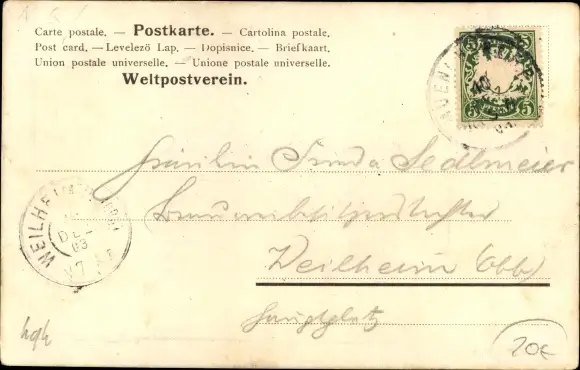 Carte postale. — Postkarte. — Cartolina postale.
Post card. — Levelező Lap. — Dopisnice. — Briefkaart.
Union postale universelle. — Unione postale universelle.
Weltpostverein.
5 5
Fräulein Frieda Sedlmeier
Weilheim (Obb)
Hauptplatz
WEILHEIM
DEZ
03
hgh
20€